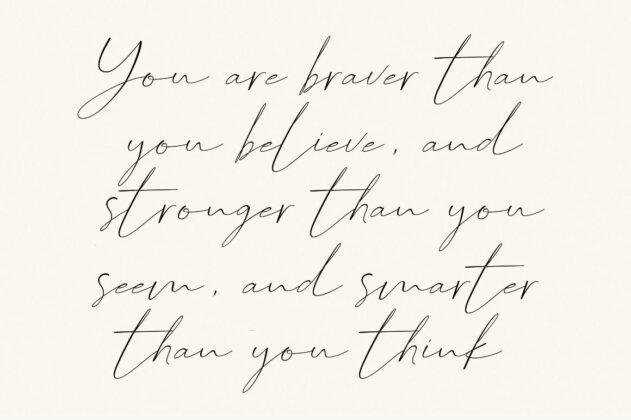 You are braver than
you believe, and
stronger than you
seem, and smarter
than you think